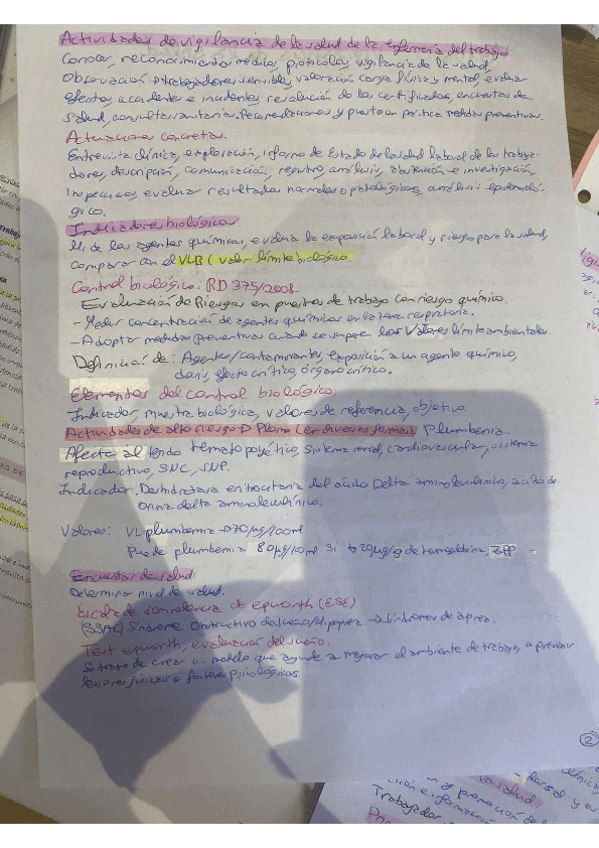 Actividades de vigilancia de la salud de la enfermería del trabajo
Conocer, reconocimientos médicos, protocolos, vigilancia de la salud,
Observación trabajadores sensibles, valoración carga física y mental, evaluar
efectos, accidentes e incidentes, resolución de los certificados, encuestas de
salud, consultas sanitarias. Recomendaciones y puesta en práctica medidas preventivas.
Actuaciones concretas.
Entrevista clínica, exploración, informe de Estado de la salud laboral de los trabaja-
dores, descripción, comunicación, registro, análisis, obtención e investigación,
inspecciones, evaluar resultados normales o patológicos, análisis epidemioló-
gico.
Indicadores biológicos
de los agentes químicos, evalúa la exposición laboral y riesgo para la salud,
comparar con el VLB (valor límite biológico.
Control biológico. RD 375/2001
Evaluación de Riesgos en puestos de trabajo con riesgo químico.
- Medir concentración de agentes químicos en la zona respiratoria.
- Adoptar medidas preventivas cuando se superen los Valores límite ambientales.
Definición de: Agente/contaminante, exposición a un agente químico,
dosis, efecto crítico, órgano crítico.
Elementos del control biológico.
Indicador, muestra biológica, valores de referencia, objetivo.
Actividades de alto riesgo Plomo (en diversas formas) Plumbemia.
Afecta al tejido hematopoyético, sistema renal, cardiovascular, sistema
reproductivo, SNC, SNP.
Indicador. Deshidratasa eritrocitaria del ácido Delta aminolevulínico, ácido de
orina delta aminolevulínico.
Valores: VL plumbemia → 70 µg/100ml
Puede plumbemia 80µg/100ml si 20µg/g de hemoglobina, ZPP
Encuestas de salud
Determina nivel de salud.
Escala de somnolencia de epworth (ESE)
Síndrome Obstructivo de sueño → Síndromes de apnea.
Test epworth, evaluación del sueño.
Se trata de crear un modelo que ayude a mejorar el ambiente de trabajo, a prevenir
lesiones físicas o factores psicológicos
2
Trabajador